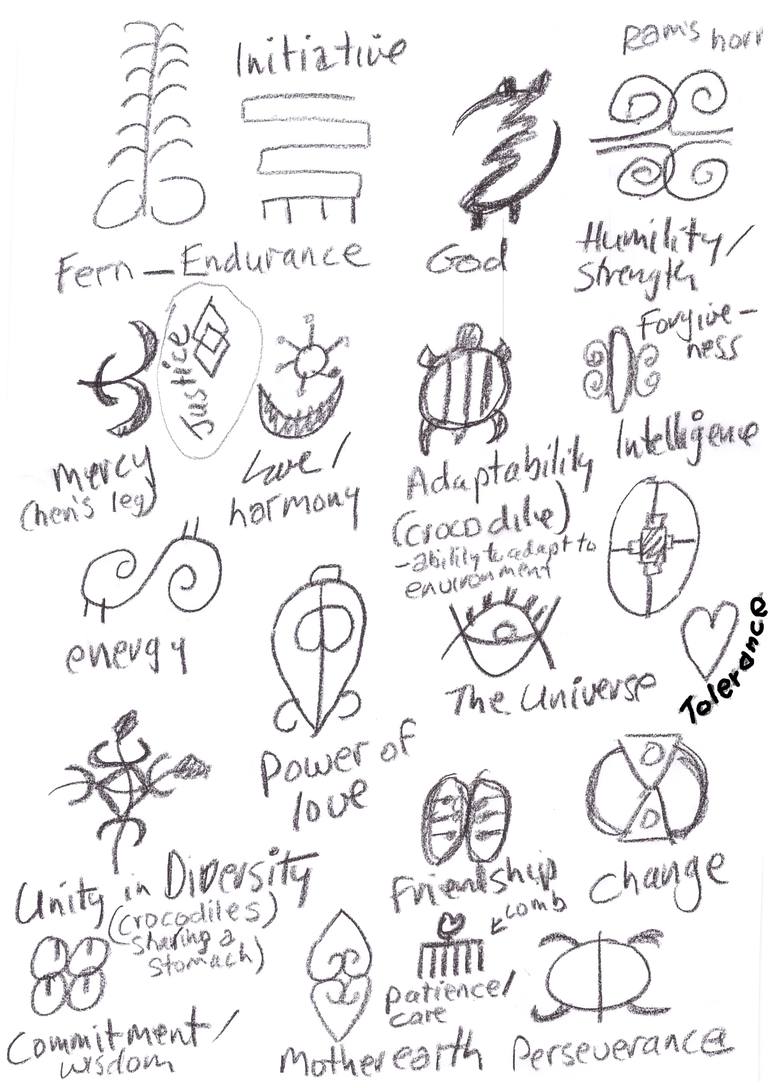 Initiative
Ram's horn
Fern - Endurance
God
Humility/
Strength
Justice
Forgive-
ness
Mercy
(hen's leg)
Love/
harmony
Adaptability
(crocodile)
-ability to adapt to
environment
Intelligence
energy
Power of
love
The Universe
Tolerance
Unity in Diversity
(crocodiles)
sharing a
stomach)
Friendship
Change
comb
Commitment/
wisdom
Mother earth
patience/
care
Perseverance